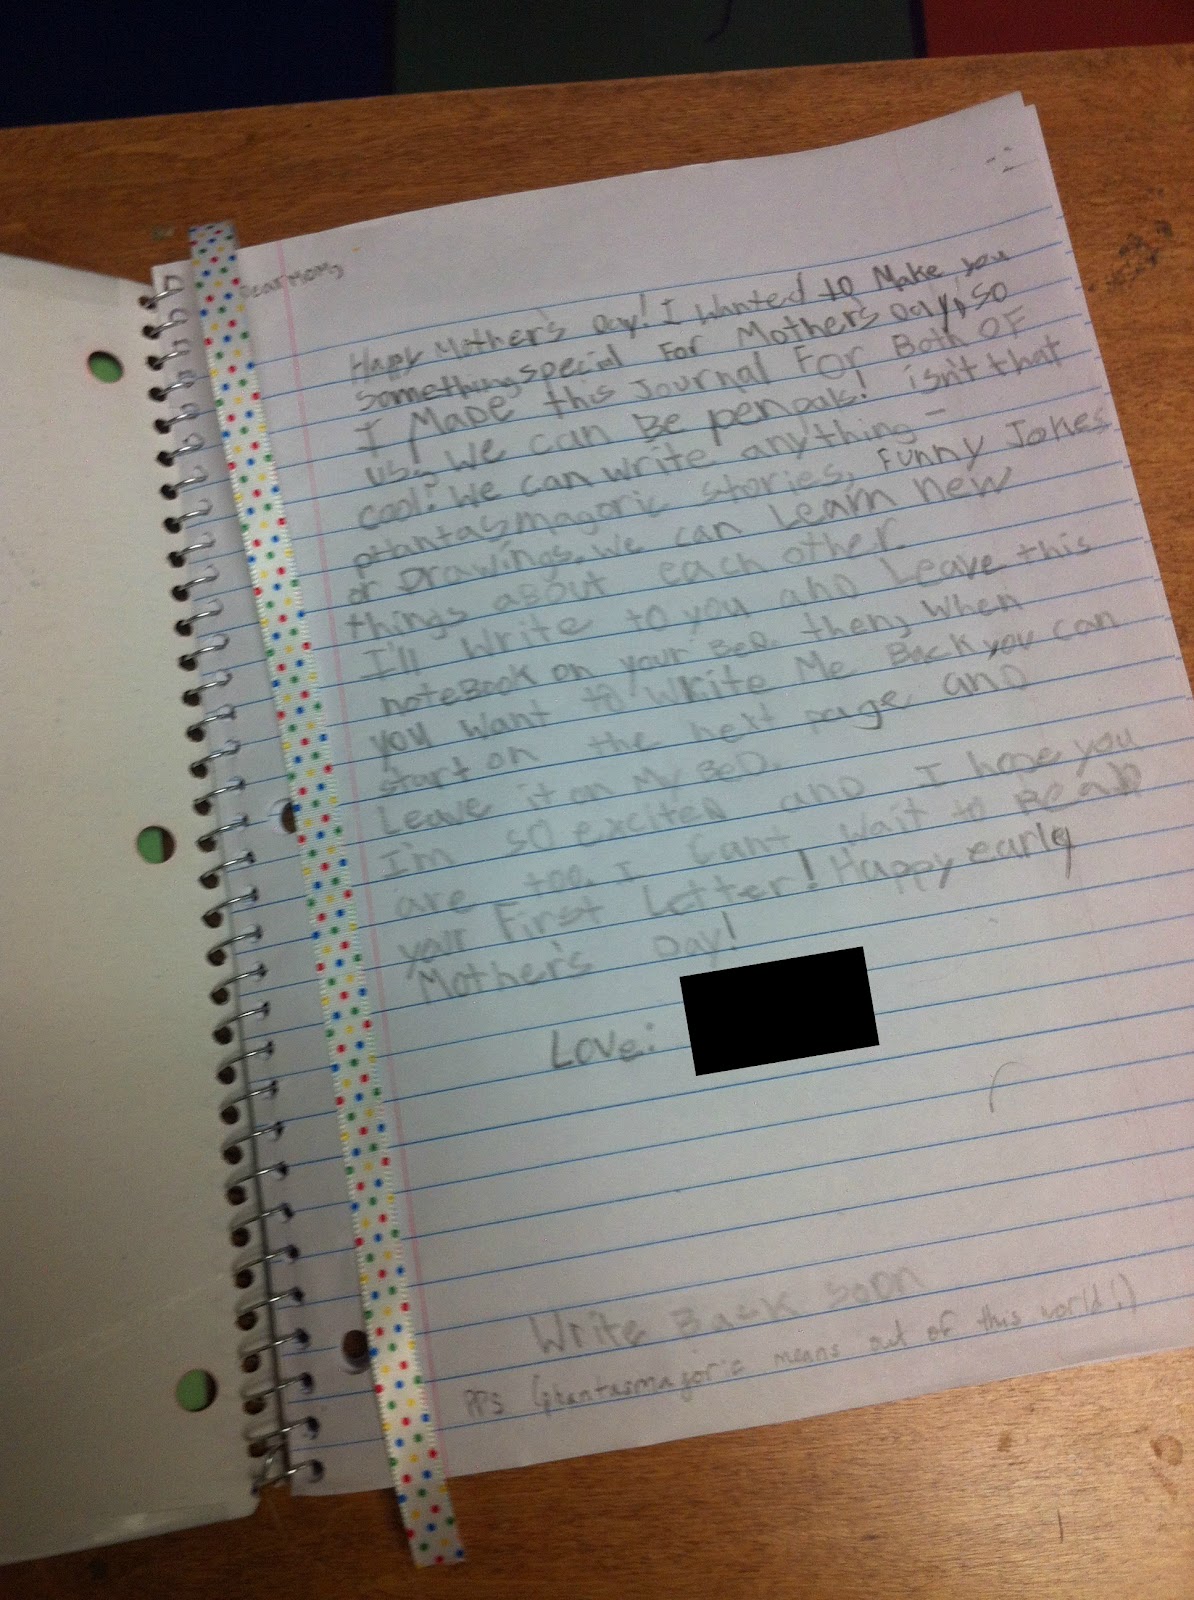 Dear Mom,
Happy Mother's Day! I Wanted to Make you
something special For Mother's Day, so
I Made this Journal For Both OF
us, We can Be penpals! isn't that
cool! We can write anything -
phantasmagoric stories, Funny Jokes
or Drawings. We can Learn new
things about each other.
I'll Write to you and Leave this
noteBook on your BeD. then, when
you Want to Write Me Back you can
start on the next page and
Leave it on My BeD.
I'm so exciteD and I hope you
are too. I Can't Wait to ReaD
your First Letter! Happy early
Mother's Day!
Love:
Write Back Soon
PPS (phantasmagoric means out of this world!)